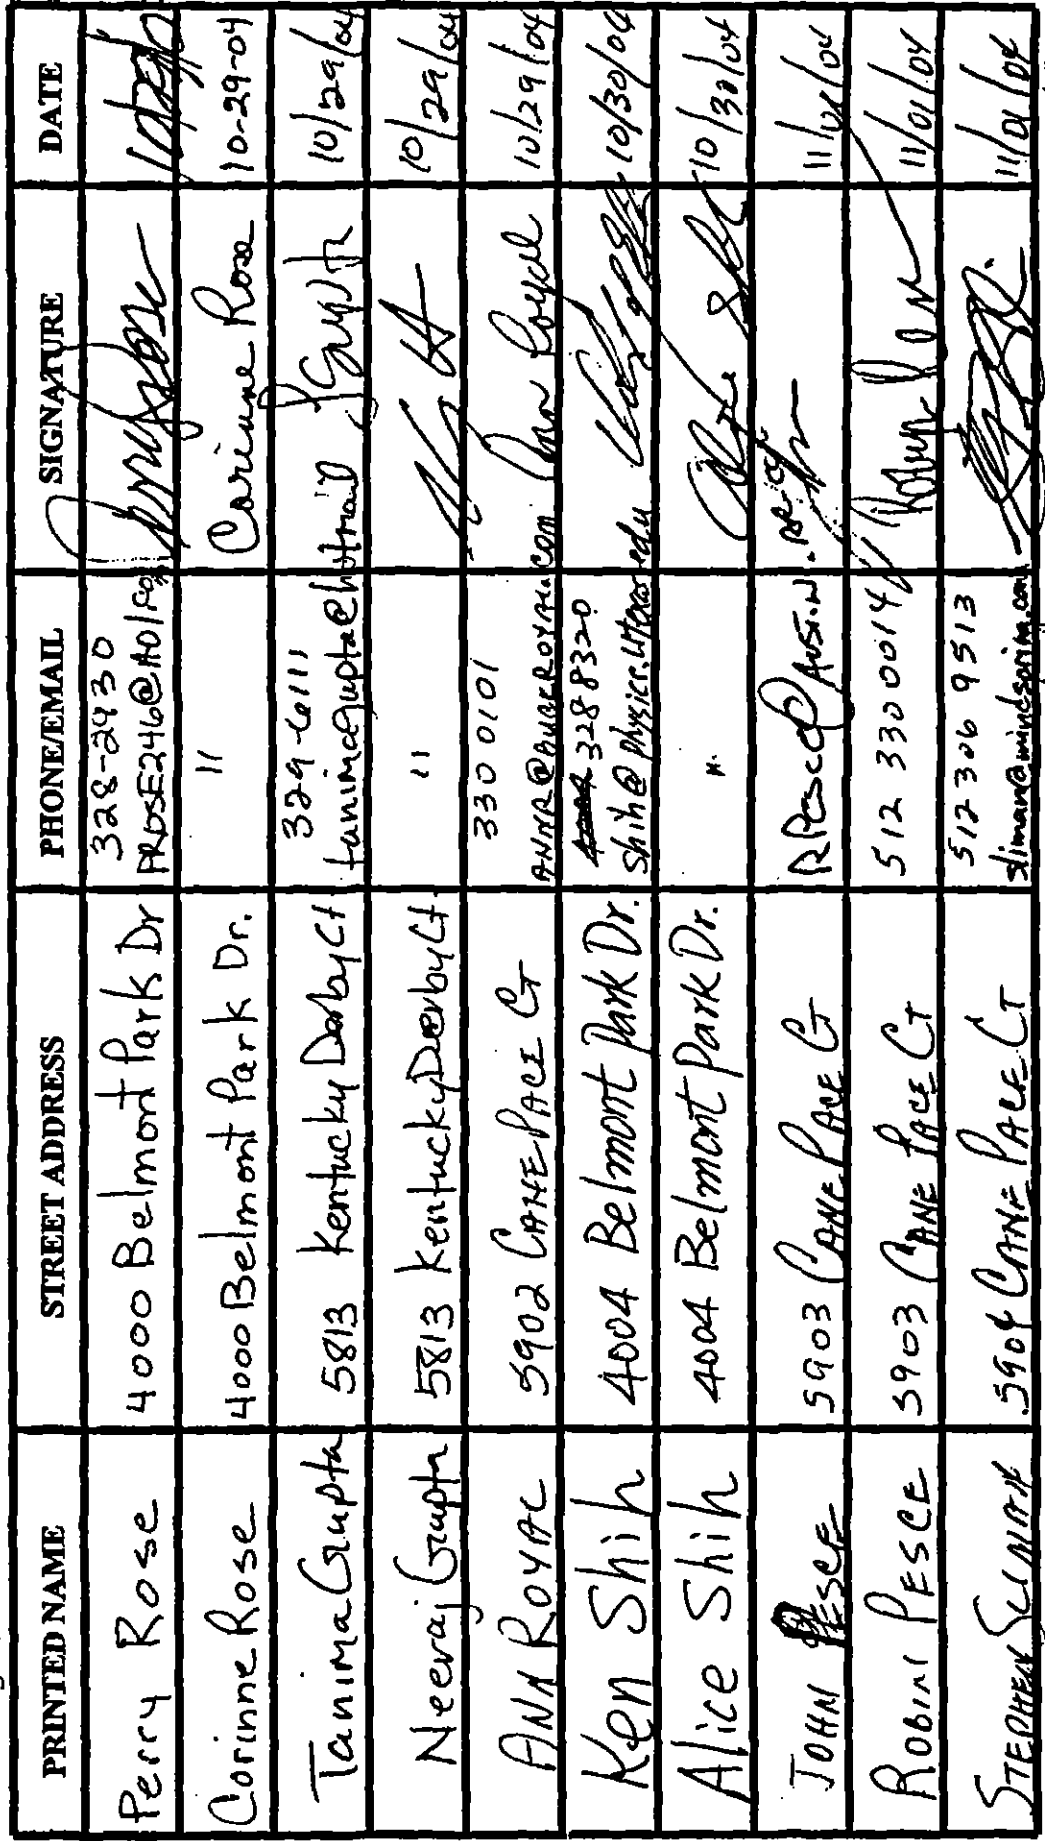 PRINTED NAME STREET ADDRESS PHONE/EMAIL SIGNATURE DATE
Perry Rose 4000 Belmont Park Dr 328-2930
PROSE246@AOl.com
Corinne Rose 4000 Belmont Park Dr. " Corinne Rose 10-29-04
Tanima Gupta 5813 Kentucky Derby Ct 329-6111 TGupta 10/29/04
tanimagupta@hotmail
Neeraj Gupta 5813 Kentucky Derby Ct " 10/29/04
ANN ROYAL 5902 CANE PACE CT 330 0101 Ann Royal 10/29/04
Ken Shih 4004 Belmont Park Dr. 328 8320 10/30/04
Shih@physics.utexas.edu
Alice Shih 4004 Belmont Park Dr. " 10/30/04
JOHN PESCE 5903 CANE PACE CT RPesce@Austin.rr.com 11/01/04
ROBIN PESCE 5903 CANE PACE CT 512 330 0014 11/01/04
STEPHEN 5904 CANE PACE CT 512 306 9513 11/01/04